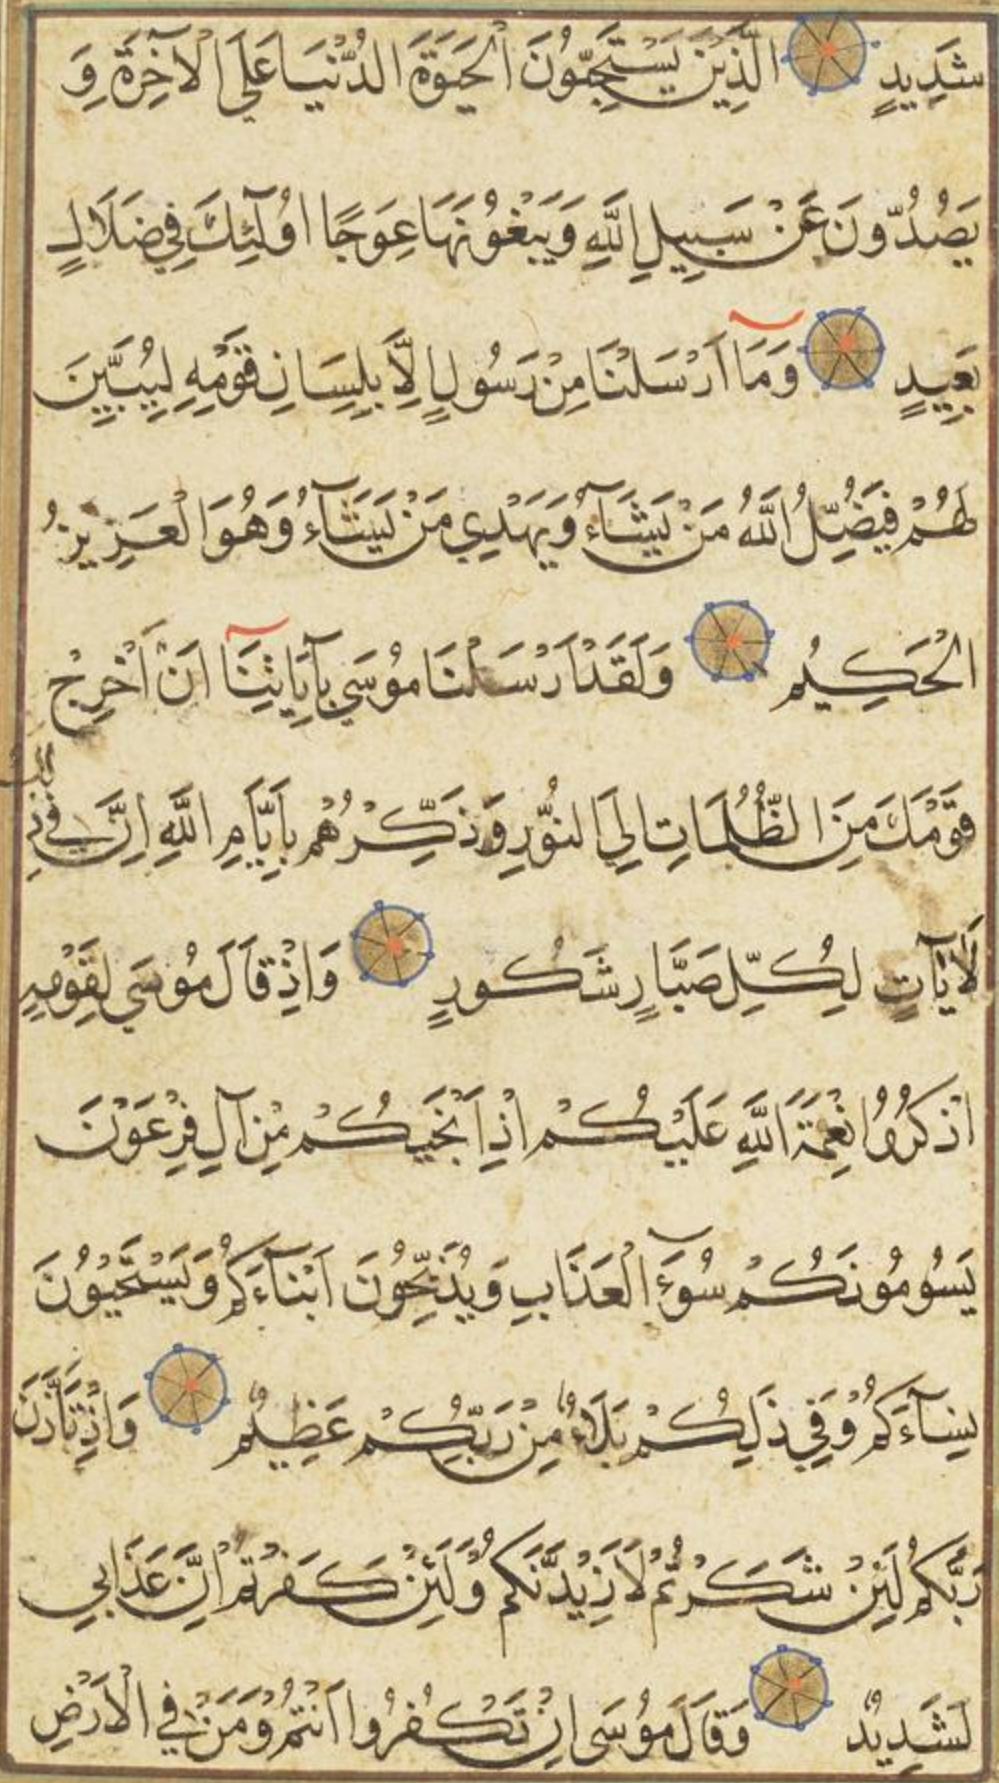 شَدِيدٍ الَّذِينَ يَسْتَحِبُّونَ الْحَيَوةَ الدُّنْيَا عَلَى الْآخِرَةِ وَ
يَصُدُّونَ عَنْ سَبِيلِ اللَّهِ وَيَبْغُونَهَا عِوَجًا اُولَٓئِكَ فِي ضَلَالٍ
بَعِيدٍ وَمَٓا اَرْسَلْنَا مِنْ رَسُولٍ اِلَّا بِلِسَانِ قَوْمِهِ لِيُبَيِّنَ
لَهُمْ فَيُضِلُّ اللَّهُ مَنْ يَشَٓاءُ وَيَهْدِي مَنْ يَشَٓاءُ وَهُوَ الْعَزِيزُ
الْحَكِيمُ وَلَقَدْ اَرْسَلْنَا مُوسَى بِآيَاتِنَٓا اَنْ اَخْرِجْ
قَوْمَكَ مِنَ الظُّلُمَاتِ اِلَى النُّورِ وَذَكِّرْهُمْ بِاَيَّامِ اللَّهِ اِنَّ فِي ذَلِكَ
لَآيَاتٍ لِكُلِّ صَبَّارٍ شَكُورٍ وَاِذْ قَالَ مُوسَى لِقَوْمِهِ
اذْكُرُوا نِعْمَةَ اللَّهِ عَلَيْكُمْ اِذْ اَنْجَيكُمْ مِنْ آلِ فِرْعَوْنَ
يَسُومُونَكُمْ سُوءَ الْعَذَابِ وَيُذَبِّحُونَ اَبْنَٓاءَكُمْ وَيَسْتَحْيُونَ
نِسَٓاءَكُمْ وَفِي ذَلِكُمْ بَلَٓاءٌ مِنْ رَبِّكُمْ عَظِيمٌ وَاِذْ تَاَذَّنَ
رَبُّكُمْ لَئِنْ شَكَرْتُمْ لَاَزِيدَنَّكُمْ وَلَئِنْ كَفَرْتُمْ اِنَّ عَذَابِي
لَشَدِيدٌ وَقَالَ مُوسَى اِنْ تَكْفُرُوا اَنْتُمْ وَمَنْ فِي الْاَرْضِ